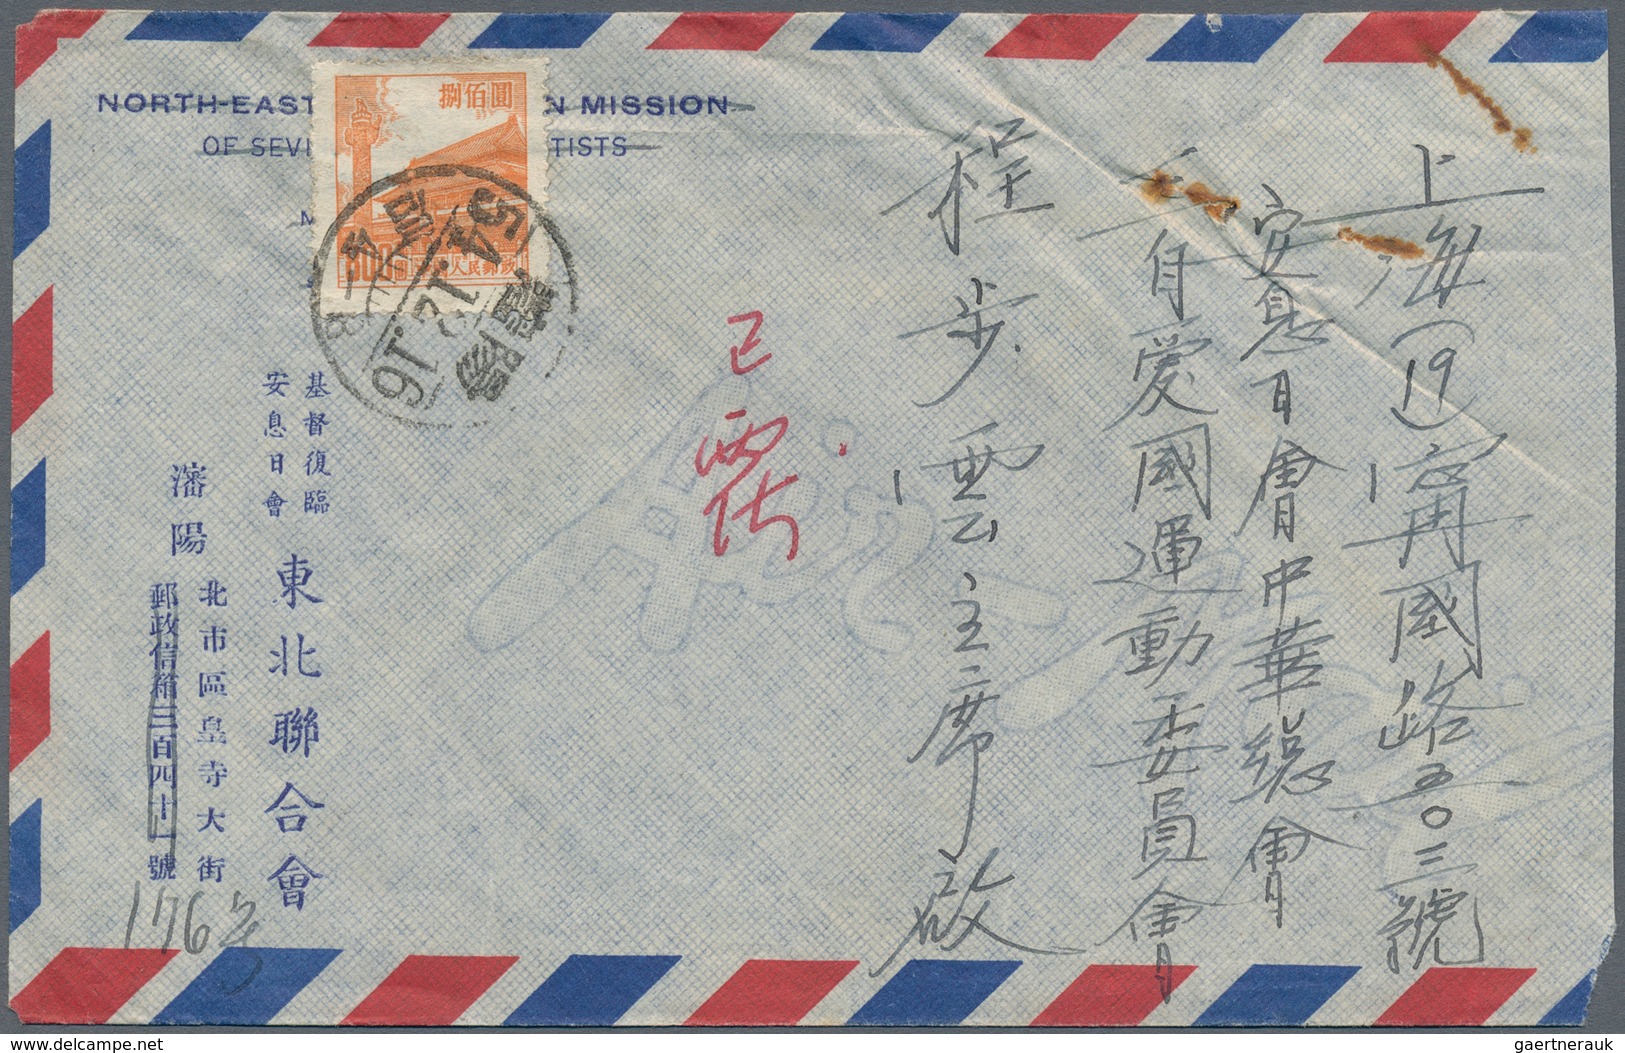 NORTH-EAST
N MISSION
OF SEVE
TISTS
捌佰圓
800
人民郵政
54.12.16
上海(19)寧國路五〇三號
安息日會中華總會
三自愛國運動委員會
程步雲主席啟
已
基督復臨
安息日會
東北聯合會
瀋陽
北市區皇寺大街
郵政信箱三百四十一號
176号
gaertnerauk